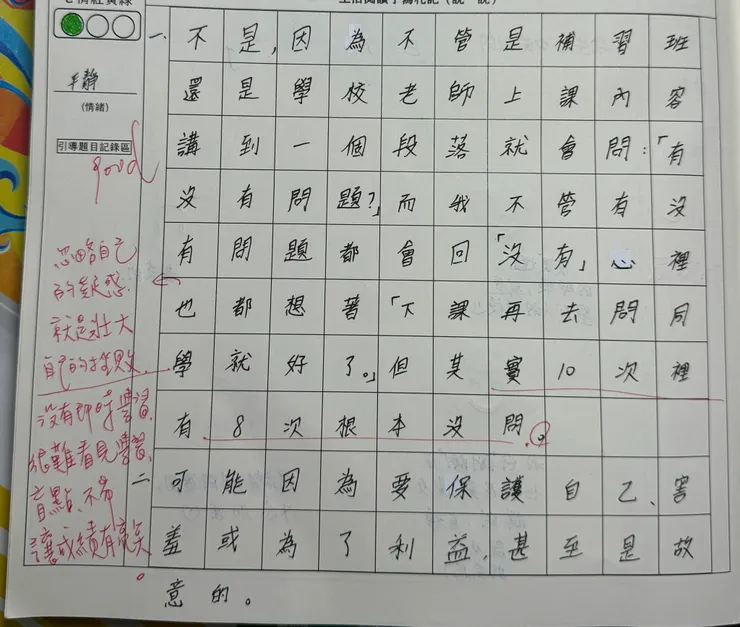 生活閱讀手寫札記(說一說)
一、不是,因為不管是補習班
還是學校老師上課內容
講到一個段落就會問:「有
沒有問題?」而我不管有沒
有問題都會回「沒有」心裡
也都想著「下課再去問同
學就好了。」但其實10次裡
有8次根本沒問。
二、可能因為要保護自己、害
羞或為了利益,甚至是故
意的。
平靜
(情緒)
引導題目記錄區
good
忽略自己
的疑惑
就是壯大
自己的挫敗
沒有即時學習
很難看見學習
盲點、不易
讓成績有亮